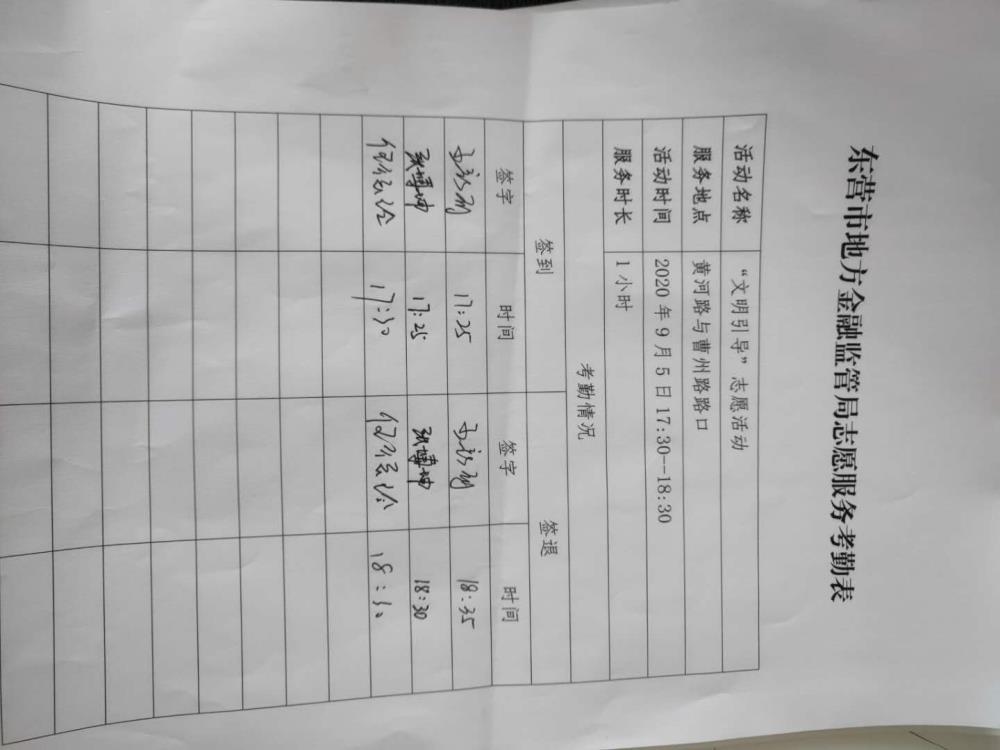 东营市地方金融监管局志愿服务考勤表
活动名称 “文明引导”志愿活动
服务地点 黄河路与曹州路路口
活动时间 2020 年 9 月 5 日 17:30--18:30
服务时长 1 小时
考勤情况
签到 签退
签字 时间 签字 时间
17:25 18:35
张博坤 17:25 张博坤 18:30
17:30 18:30